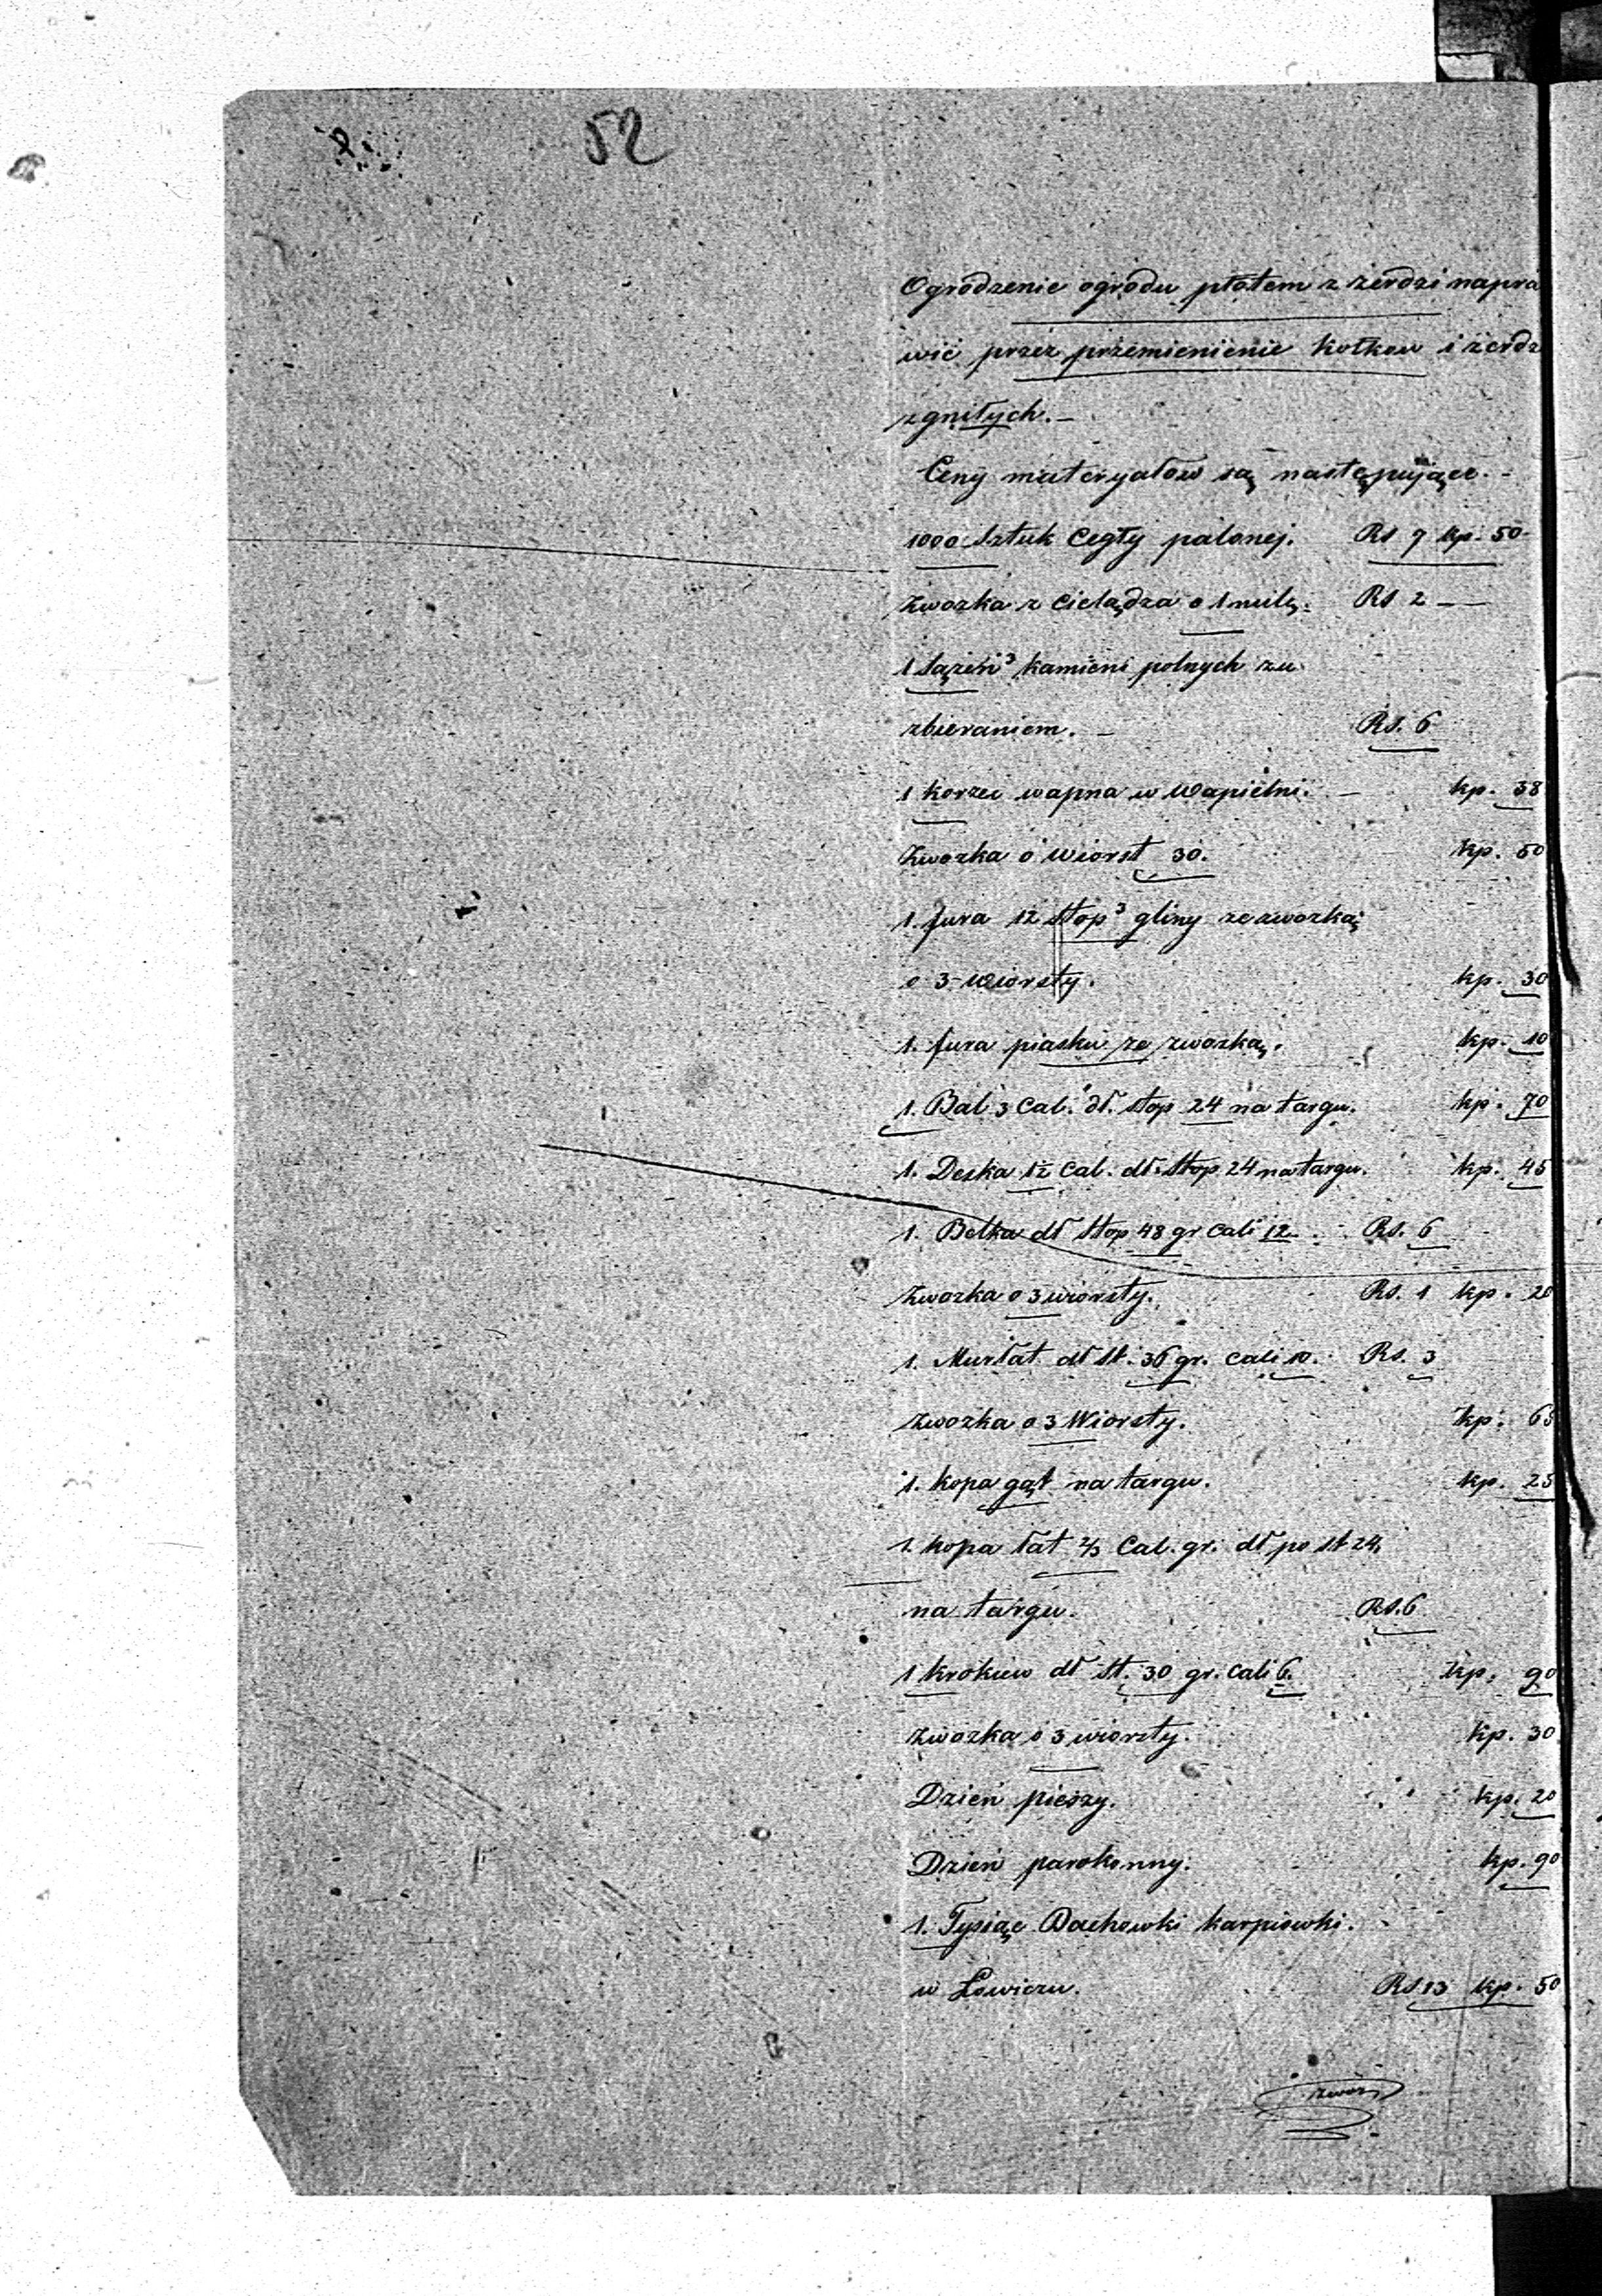 52
Ogrodzenie ogrodu płotem z żerdzi napra
wić przez przemienienie kołkow i żerdz
zgniłych. —
Ceny materyałów są następujące. -
1000 Sztuk Cegły palonej. Rs 9 kp. 50
Zwozka z Cielądza o 1 milę. Rs 2 —
1 Sążeń³ kamieni polnych ze
zbieraniem. — Rs. 6
1 korzec wapna w Wapielni. — kp. 38
Zwozka o Wiorst 30. kp. 50
1. fura 12 stop³ gliny ze zwozką
o 3 Wiorsty. kp. 30
1. fura piasku ze zwozką. kp. 10
1. Bal 3 Cal. dł. stop 24 na targu. kp. 70
1. Deska 1½ Cal. dł. Stop 24 na targu. kp. 45
1. Belka dł Stop 48 gr Cali 12. Rs. 6
Zwozka o 3 wiorsty. Rs. 1 kp. 20
1. Murłat dł st. 36 gr. Cali 10. Rs. 3
Zwozka o 3 Wiorsty. kp. 6
1. kopa gąt na targu. kp. 25
1. kopa łat 2/3 Cal. gr. dł po st 24,
na targu. Rs. 6
1 krokiew dł St. 30 gr. Cali 6. kp. 90
Zwozka o 3 wiorsty. kp. 30
Dzień pieszy. kp. 20
Dzień parokonny. kp. 90
1. Tysiąc Dachowki karpiowki.
w Łowiczu. Rs 13 kp. 50